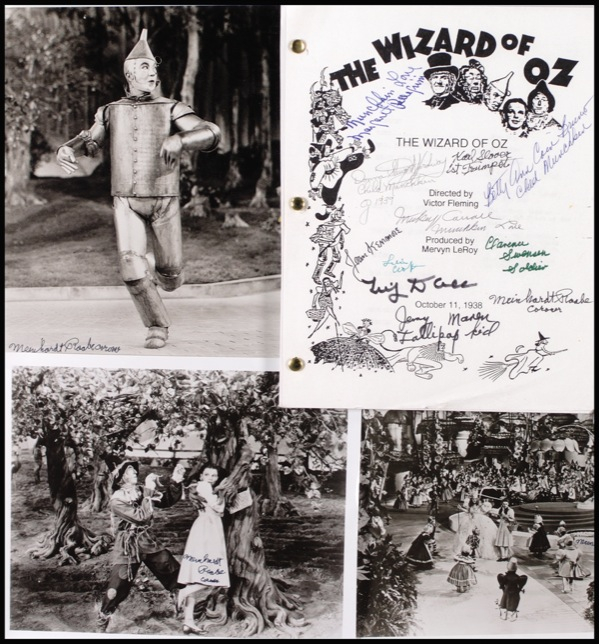 THE WIZARD OF OZ
Munchkin
Margaret Pellegrini
THE WIZARD OF OZ
Karl Slover
1st Trumpet
Betty Ann Cain Bruno
Child Munchkin
Child Munchkin
of 1939
Directed by
Victor Fleming
Mickey Carroll
Munchkin Land
Produced by
Mervyn LeRoy
Clarence
Swensen
Soldier
October 11, 1938
Meinhardt Raabe
Coroner
Jerry Maren
Lollipop Kid
Meinhardt Raabe coroner
Meinhardt
Raabe
coroner
Meinhardt